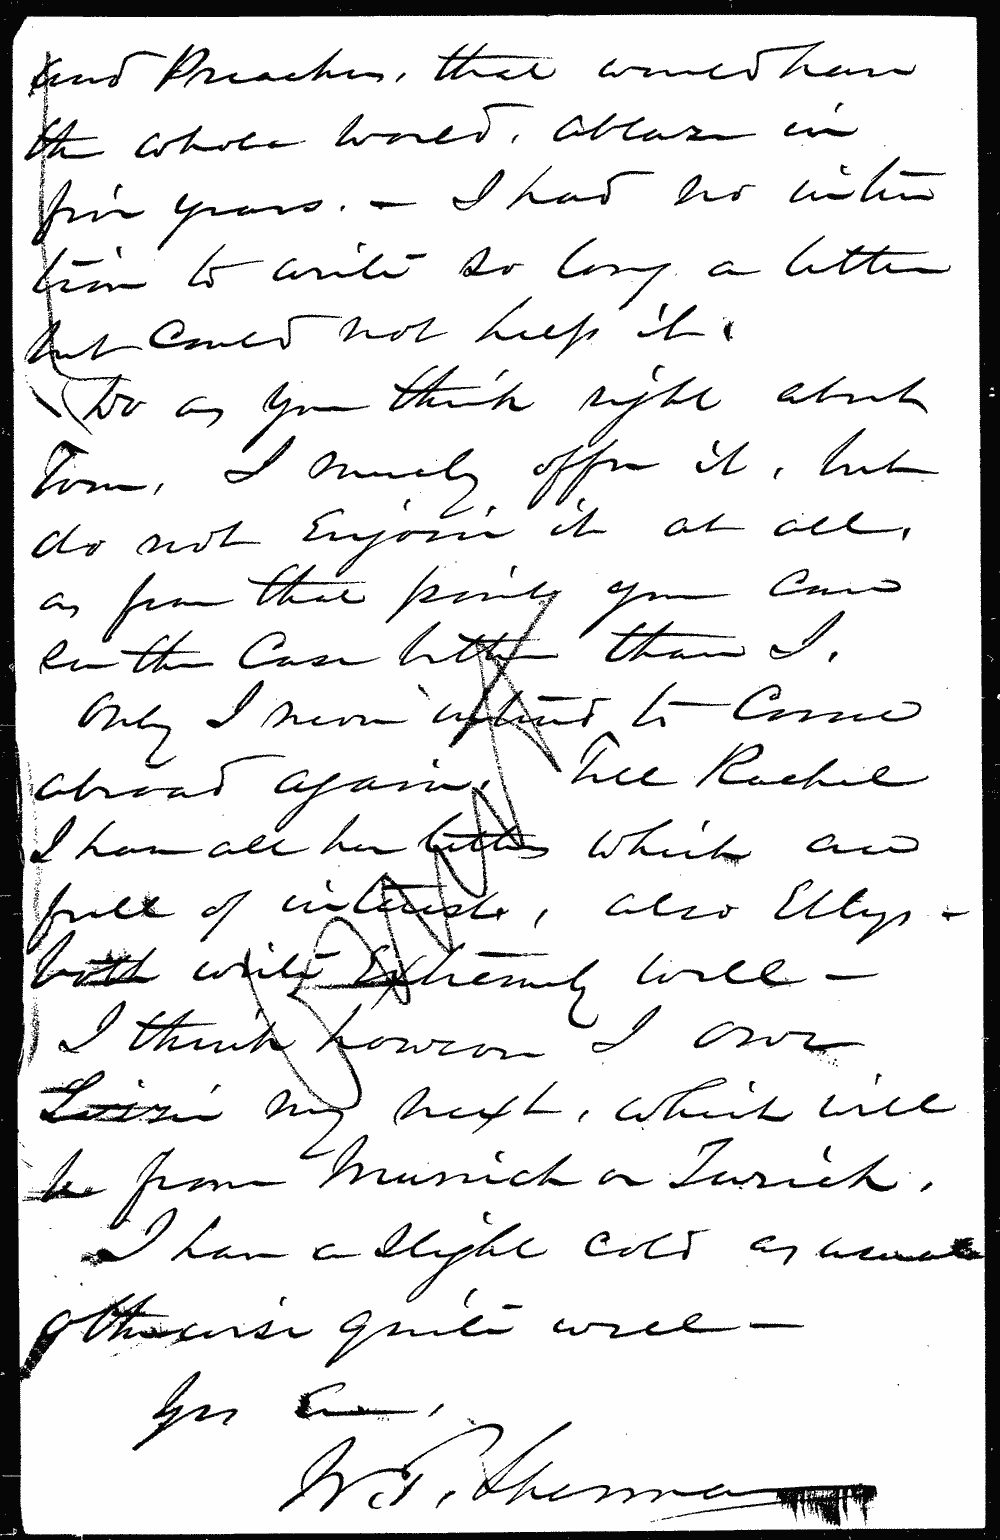 and Preachers, that would have
the whole world, ablaze in
five years. — I had no inten
tion to write so long a letter
but could not help it.
Do as you think right about
Tom, I merely offer it, but
do not Enjoin it at all,
as from that point you can
see the Case better than I.
Only I never intend to Come
abroad again. Tell Rachel
I have all her letters which are
full of interest, also Ellys -
both write Extremely well —
I think however I owe
Lizzie my next, which will
be from Munich or Zurich.
I have a slight cold as usual
otherwise quite well —
Yrs
W. T. Sherman